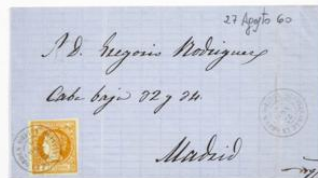 27 Agosto 60
A D. Gregorio Rodriguez
Caba baja 22 y 24.
Madrid